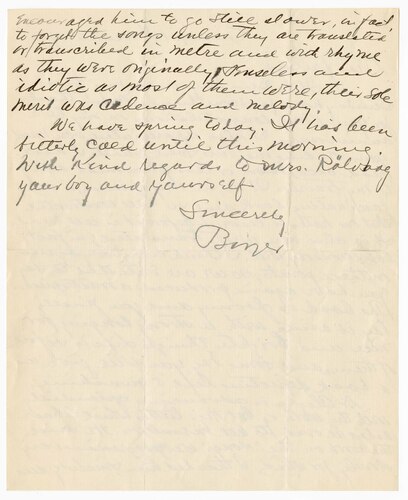 encouraged him to go still slower, in fact
to forget the songs unless they are translated
or transcribed in metre and with rhyme
as they were originally. Senseless and
idiotic as most of them were, their sole
merit was cadence and melody.
We have spring today. It has been
bitterly cold until this morning.
With kind regards to Mrs. Rölvaag
your boy and yourself
Sincerely
Birger